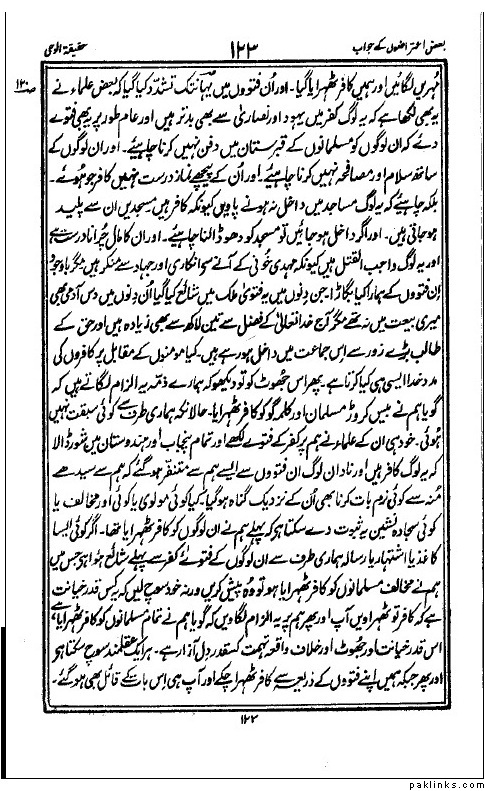 بعض اعتراضوں کے جواب
۱۲۳
حقیقۃ الوحی
مُہریں لگائیں اور ہمیں کافر ٹھہرایا گیا۔ اور اُن فتووں میں یہانتک تشدّد کیا گیا کہ بعض علماء نے
صـ ۱۲۰
یہ بھی لکھا ہے کہ یہ لوگ کفر میں یہود اور نصاریٰ سے بھی بدتر ہیں اور عام طور پر یہ بھی فتوے
دئے کہ ان لوگوں کو مسلمانوں کے قبرستان میں دفن نہیں کرنا چاہیئے۔ اور ان لوگوں کے
ساتھ سلام اور مصافحہ نہیں کرنا چاہیئے۔ اور اُن کے پیچھے نماز درست نہیں کافر جو ہوئے۔
بلکہ چاہیئے کہ یہ لوگ مساجد میں داخل نہ ہونے پاویں کیونکہ کافر ہیں مسجدیں ان سے پلید
ہو جاتی ہیں۔ اور اگر داخل ہو جائیں تو مسجد کو دھو ڈالنا چاہیئے۔ اور ان کا مال چُرانا درست ہے
اور یہ لوگ واجب القتل ہیں کیونکہ مہدی خونی کے آنے سے انکاری اور جہاد سے منکر ہیں مگر باوجود
اِن فتووں کے ہمارا کیا بگاڑا۔ جن دِنوں میں یہ فتویٰ ملک میں شائع کیا گیا اُن دِنوں میں دس آدمی بھی
میری بیعت میں نہ تھے مگر آج خدا تعالیٰ کے فضل سے تین لاکھ سے بھی زیادہ ہیں اور حق کے
طالب بڑے زور سے اِس جماعت میں داخل ہو رہے ہیں۔ کیا مومنوں کے مقابل پر کافروں کی
مدد خدا ایسی ہی کیا کرتا ہے۔ پھر اس جُھوٹ کو تو دیکھو کہ ہمارے ذمّہ یہ الزام لگاتے ہیں کہ
گویا ہم نے بیس کروڑ مسلمان اور کلمہ گو کو کافر ٹھہرایا۔ حالانکہ ہماری طرف سے کوئی سبقت نہیں
ہوئی۔ خود ہی ان کے علماء نے ہم پر کفر کے فتوے لکھے اور تمام پنجاب اور ہندوستان میں شور ڈالا
کہ یہ لوگ کافر ہیں اور نادان لوگ ان فتووں سے ایسے ہم سے متنفر ہو گئے کہ ہم سے سیدھے
مُنہ سے کوئی نرم بات کرنا بھی اُن کے نزدیک گناہ ہو گیا۔ کیا کوئی مولوی یا کوئی اور مخالف یا
کوئی سجادہ نشین یہ ثبوت دے سکتا ہے کہ پہلے ہم نے ان لوگوں کو کافر ٹھہرایا تھا۔ اگر کوئی ایسا
کاغذ یا اشتہار یا رسالہ ہماری طرف سے ان لوگوں کے فتوائے کفر سے پہلے شائع ہوا ہے جس میں
ہم نے مخالف مسلمانوں کو کافر ٹھہرایا ہو تو وہ پیش کریں ورنہ خود سوچ لیں کہ یہ کس قدر خیانت
ہے کہ کافر تو ٹھہراویں آپ اور پھر ہم پر یہ الزام لگاویں کہ گویا ہم نے تمام مسلمانوں کو کافر ٹھہرایا ہے
اس قدر خیانت اور جھوٹ اور خلاف واقعہ تہمت کس قدر دل آزار ہے۔ ہر ایک عقلمند سوچ سکتا ہے
اور پھر جبکہ ہمیں اپنے فتووں کے ذریعہ سے کافر ٹھہرا چکے اور آپ ہی اِس بات کے قائل بھی ہو گئے۔
۱۲۳
paklinks.com